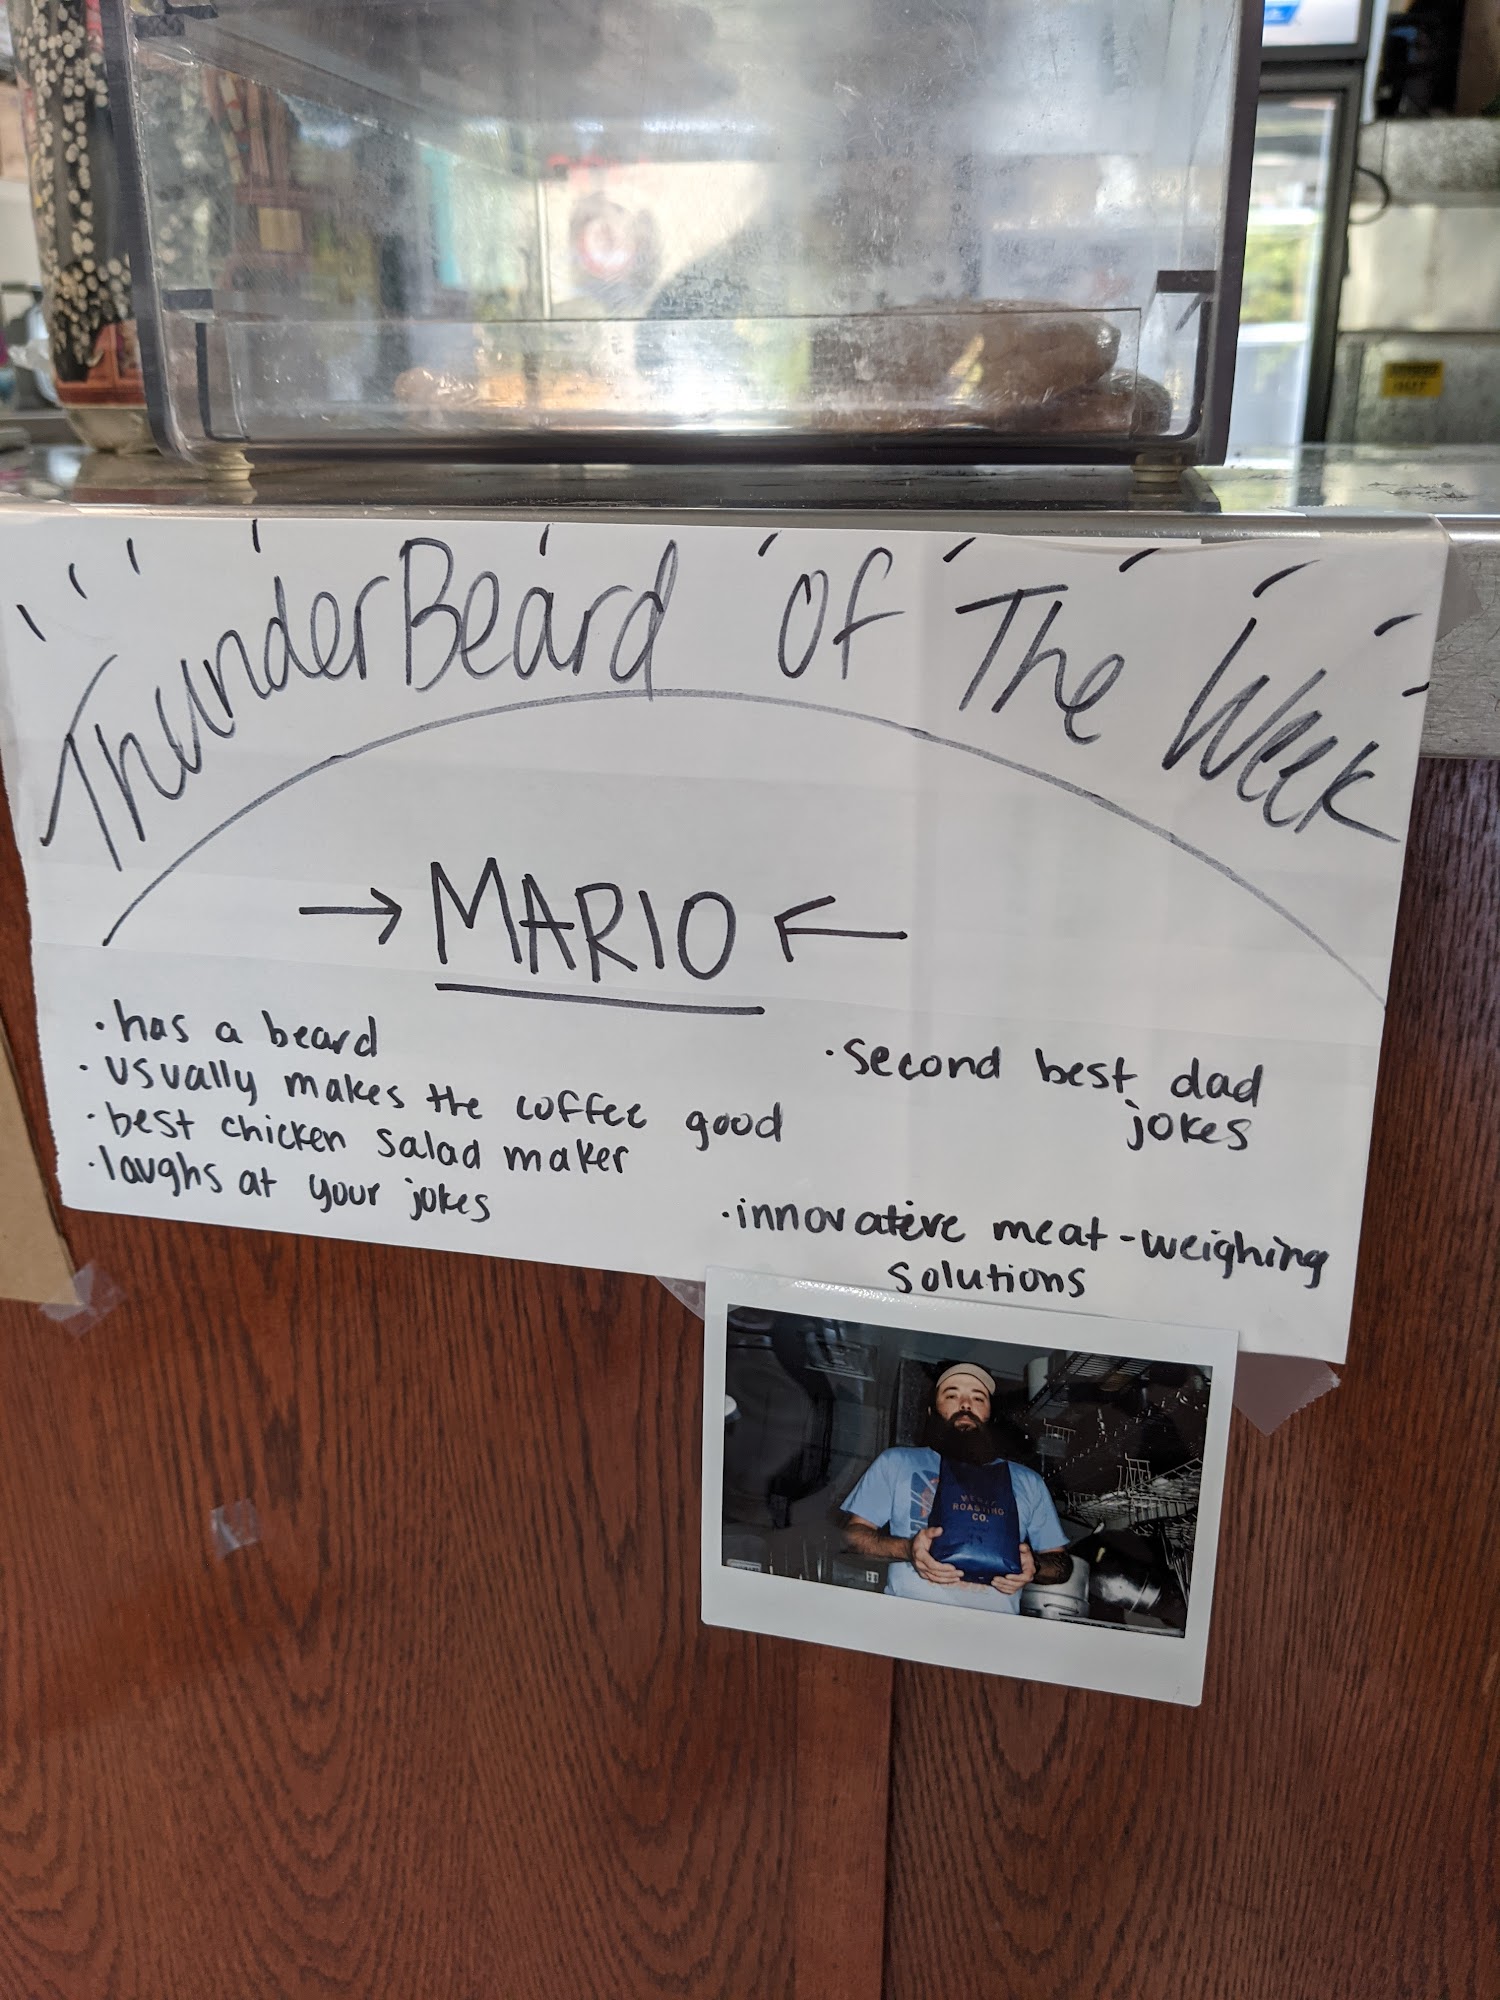 ThunderBeard of The Week
MARIO
· has a beard
· usually makes the coffee good
· best chicken salad maker
· laughs at your jokes
· second best dad
jokes
· innovative meat-weighing
solutions
ROASTING
CO.